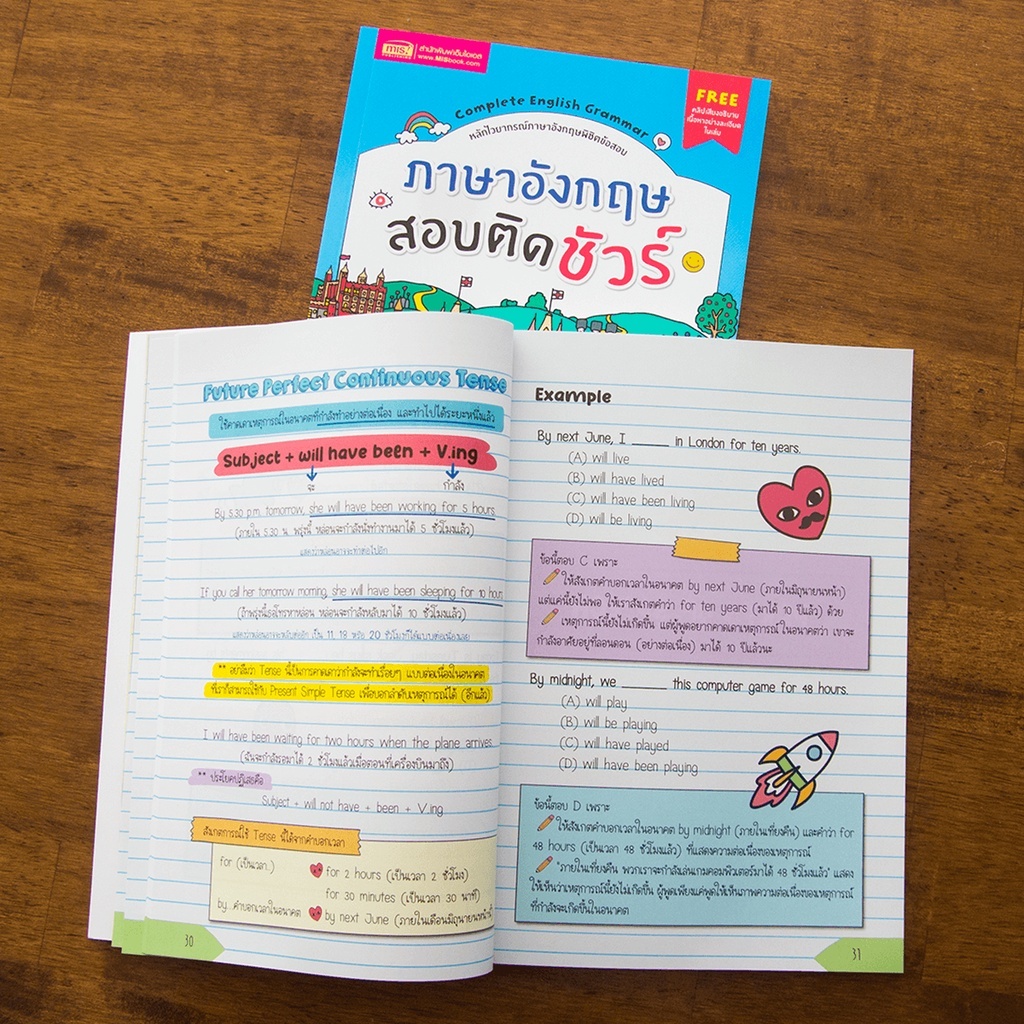 mis
สำนักพิมพ์เอ็มไอเอส
www.MISbook.com
FREE
คลิปเสียงอธิบาย
เนื้อหาอย่างละเอียด
ในเล่ม
Complete English Grammar
หลักไวยากรณ์ภาษาอังกฤษพิชิตข้อสอบ
ภาษาอังกฤษ
สอบติดชัวร์
Future Perfect Continuous Tense
ใช้คาดเดาเหตุการณ์ในอนาคตที่กำลังทำอย่างต่อเนื่อง และทำไปได้ระยะหนึ่งแล้ว
Subject + will have been + V.ing
จะ กำลัง
By 5.30 p.m. tomorrow, she will have been working for 5 hours.
(ภายใน 5.30 น. พรุ่งนี้ หล่อนจะกำลังนั่งทำงานมาได้ 5 ชั่วโมงแล้ว)
แสดงว่าหล่อนอาจจะทำต่อไปอีก
If you call her tomorrow morning, she will have been sleeping for 10 hours.
(ถ้าพรุ่งนี้เธอโทรหาหล่อน หล่อนจะกำลังหลับมาได้ 10 ชั่วโมงแล้ว)
แสดงว่าหล่อนอาจจะหลับต่ออีก เป็น 11, 18 หรือ 20 ชั่วโมงก็ได้แบบต่อเนื่องเลย
** อย่าลืมว่า Tense นี้เป็นการคาดเดาว่ากำลังจะทำเรื่อยๆ แบบต่อเนื่องในอนาคต
ที่เราก็สามารถใช้กับ Present Simple Tense เพื่อบอกลำดับเหตุการณ์ได้ (อีกแล้ว)
I will have been waiting for two hours when the plane arrives.
(ฉันจะกำลังรอมาได้ 2 ชั่วโมงแล้วเมื่อตอนที่เครื่องบินมาถึง)
** ประโยคปฏิเสธคือ
Subject + will not have + been + V.ing
สังเกตการณ์ใช้ Tense นี้ได้จากคำบอกเวลา
for (เป็นเวลา..) for 2 hours (เป็นเวลา 2 ชั่วโมง)
for 30 minutes (เป็นเวลา 30 นาที)
by คำบอกเวลาในอนาคต by next June (ภายในเดือนมิถุนายนหน้า)
30
Example
By next June, I ______ in London for ten years.
(A) will live
(B) will have lived
(C) will have been living
(D) will be living
ข้อนี้ตอบ C เพราะ
ให้สังเกตคำบอกเวลาในอนาคต by next June (ภายในมิถุนายนหน้า)
แต่แค่นี้ยังไม่พอ ให้เราสังเกตคำว่า for ten years (มาได้ 10 ปีแล้ว) ด้วย
เหตุการณ์นี้ยังไม่เกิดขึ้น แต่ผู้พูดอยากคาดเดาเหตุการณ์ในอนาคตว่า เขาจะ
กำลังอาศัยอยู่ที่ลอนดอน (อย่างต่อเนื่อง) มาได้ 10 ปีแล้วนะ
By midnight, we ______ this computer game for 48 hours.
(A) will play
(B) will be playing
(C) will have played
(D) will have been playing
ข้อนี้ตอบ D เพราะ
ให้สังเกตคำบอกเวลาในอนาคต by midnight (ภายในเที่ยงคืน) และคำว่า for
48 hours (เป็นเวลา 48 ชั่วโมงแล้ว) ที่แสดงความต่อเนื่องของเหตุการณ์
"ภายในเที่ยงคืน พวกเราจะกำลังเล่นเกมคอมพิวเตอร์มาได้ 48 ชั่วโมงแล้ว" แสดง
ให้เห็นว่าเหตุการณ์นี้ยังไม่เกิดขึ้น ผู้พูดเพียงแค่พูดให้เห็นภาพความต่อเนื่องของเหตุการณ์
ที่กำลังจะเกิดขึ้นในอนาคต
31